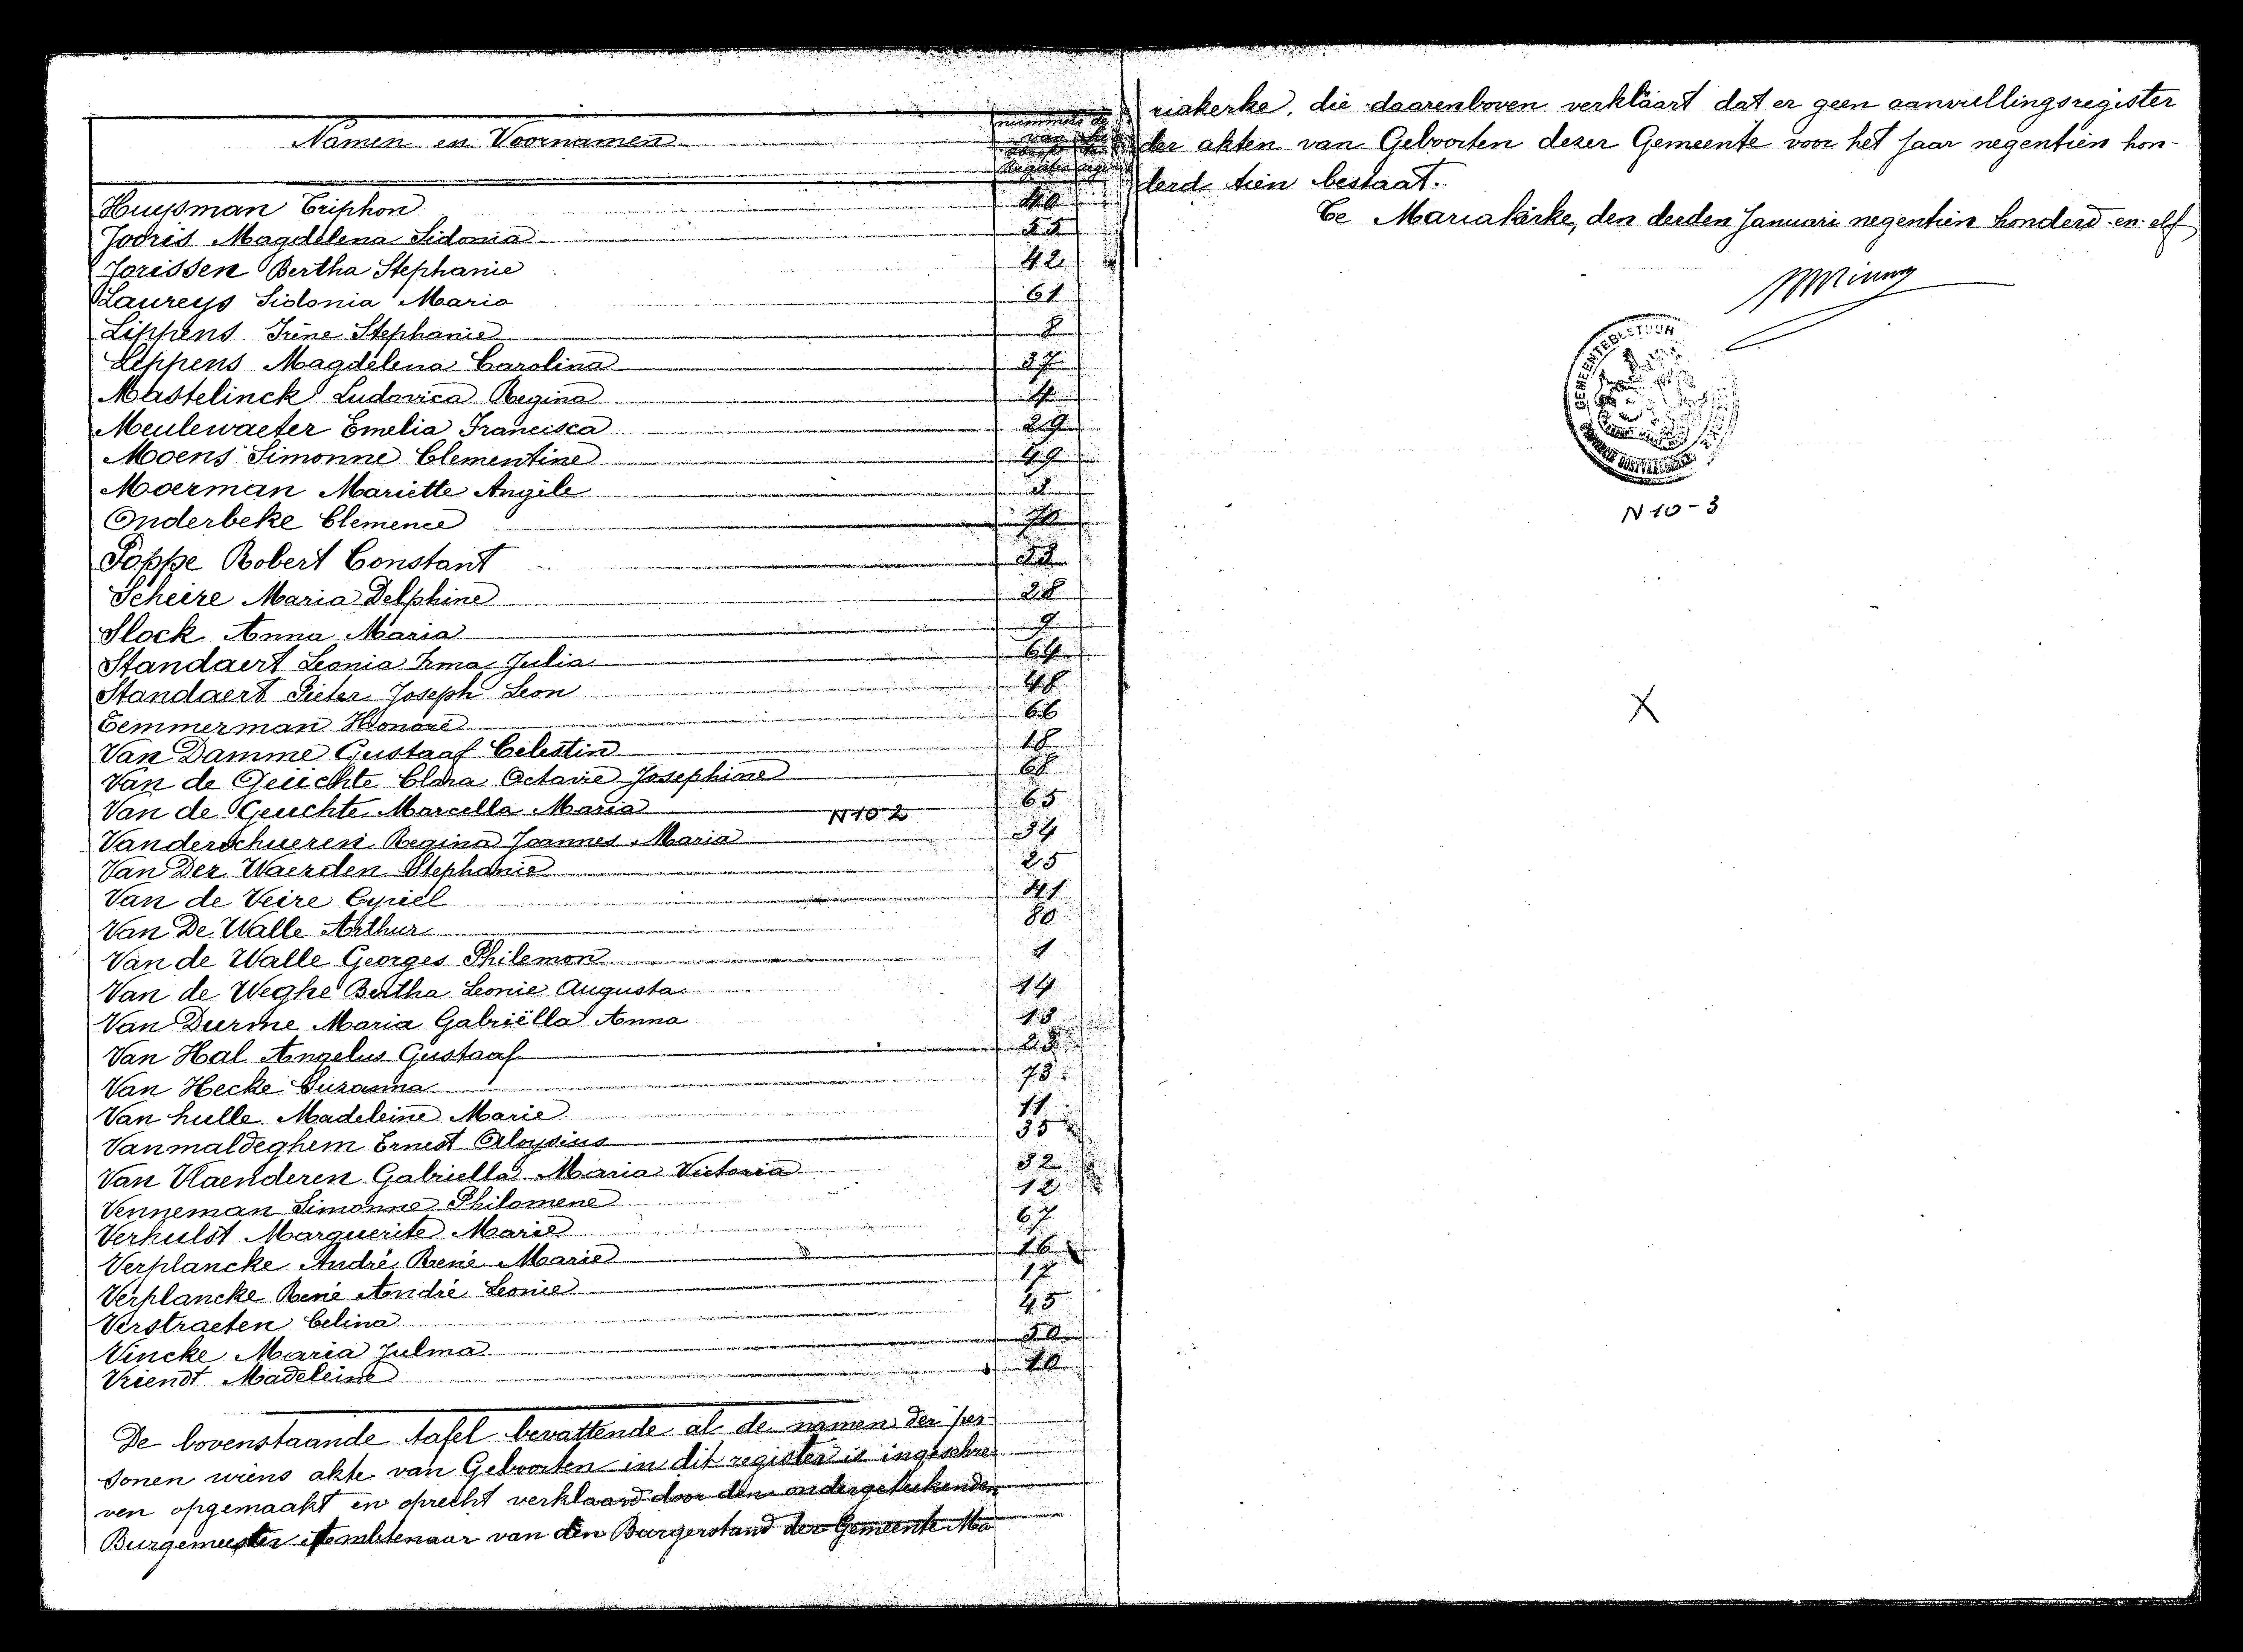 Namen en Voornamen
nummers
van
Register
Huysman Triphon 40
Jooris Magdelena Sidonia 55
Jorissen Bertha Stephanie 42
Laureys Sidonia Maria 61
Lippens Irène Stephanie 8
Lippens Magdelena Carolina 37
Mastelinck Ludovica Regina 4
Meulewaeter Emelia Francisca 29
Moens Simonne Clementine 49
Moerman Mariette Angèle
Onderbeke Clemence 70
Poppe Robert Constant 53
Scheire Maria Delphine 28
Slock Anna Maria 9
Standaert Leonia Irma Julia 64
Standaert Pieter Joseph Leon 48
Temmerman Honoré 66
Van Damme Gustaaf Celestin 18
Van de Geuchte Clara Octavie Josephine 68
Van de Geuchte Marcella Maria 65
N 10 2
Vanderschueren Regina Joannes Maria 34
Van Der Waerden Stephanie 25
Van de Veire Cyriel 41
Van De Walle Arthur 80
Van de Walle Georges Philemon 1
Van de Weghe Bertha Leonie Augusta 14
Van Durme Maria Gabriëlla Anna 13
Van Hal Angelus Gustaaf 23
Van Hecke Suzanna 73
Van hulle Madeleine Marie 11
Vanmaldeghem Ernest Aloysius 35
Van Vlaenderen Gabriella Maria Victoria 32
Venneman Simonne Philomene 12
Verhulst Marguerite Marie 67
Verplancke André René Marie 16
Verplancke René André Leonie 17
Verstraeten Celina 45
Vincke Maria Julma 50
Vriendt Madeleine 10
De bovenstaande tafel bevattende al de namen der per-
sonen wiens akte van Geboorten in dit register is ingeschre-
ven opgemaakt en oprecht verklaard door den ondergeteekenden
Burgemeester Ambtenaar van den Burgerstand der Gemeente Ma
riakerke, die daarenboven verklaart dat er geen aanvullingsregister
der akten van Geboorten dezer Gemeente voor het jaar negentien hon-
derd tien bestaat.
Te Mariakerke, den derden Januari negentien honderd en elf
GEMEENTEBESTUUR
N 10 - 3
X